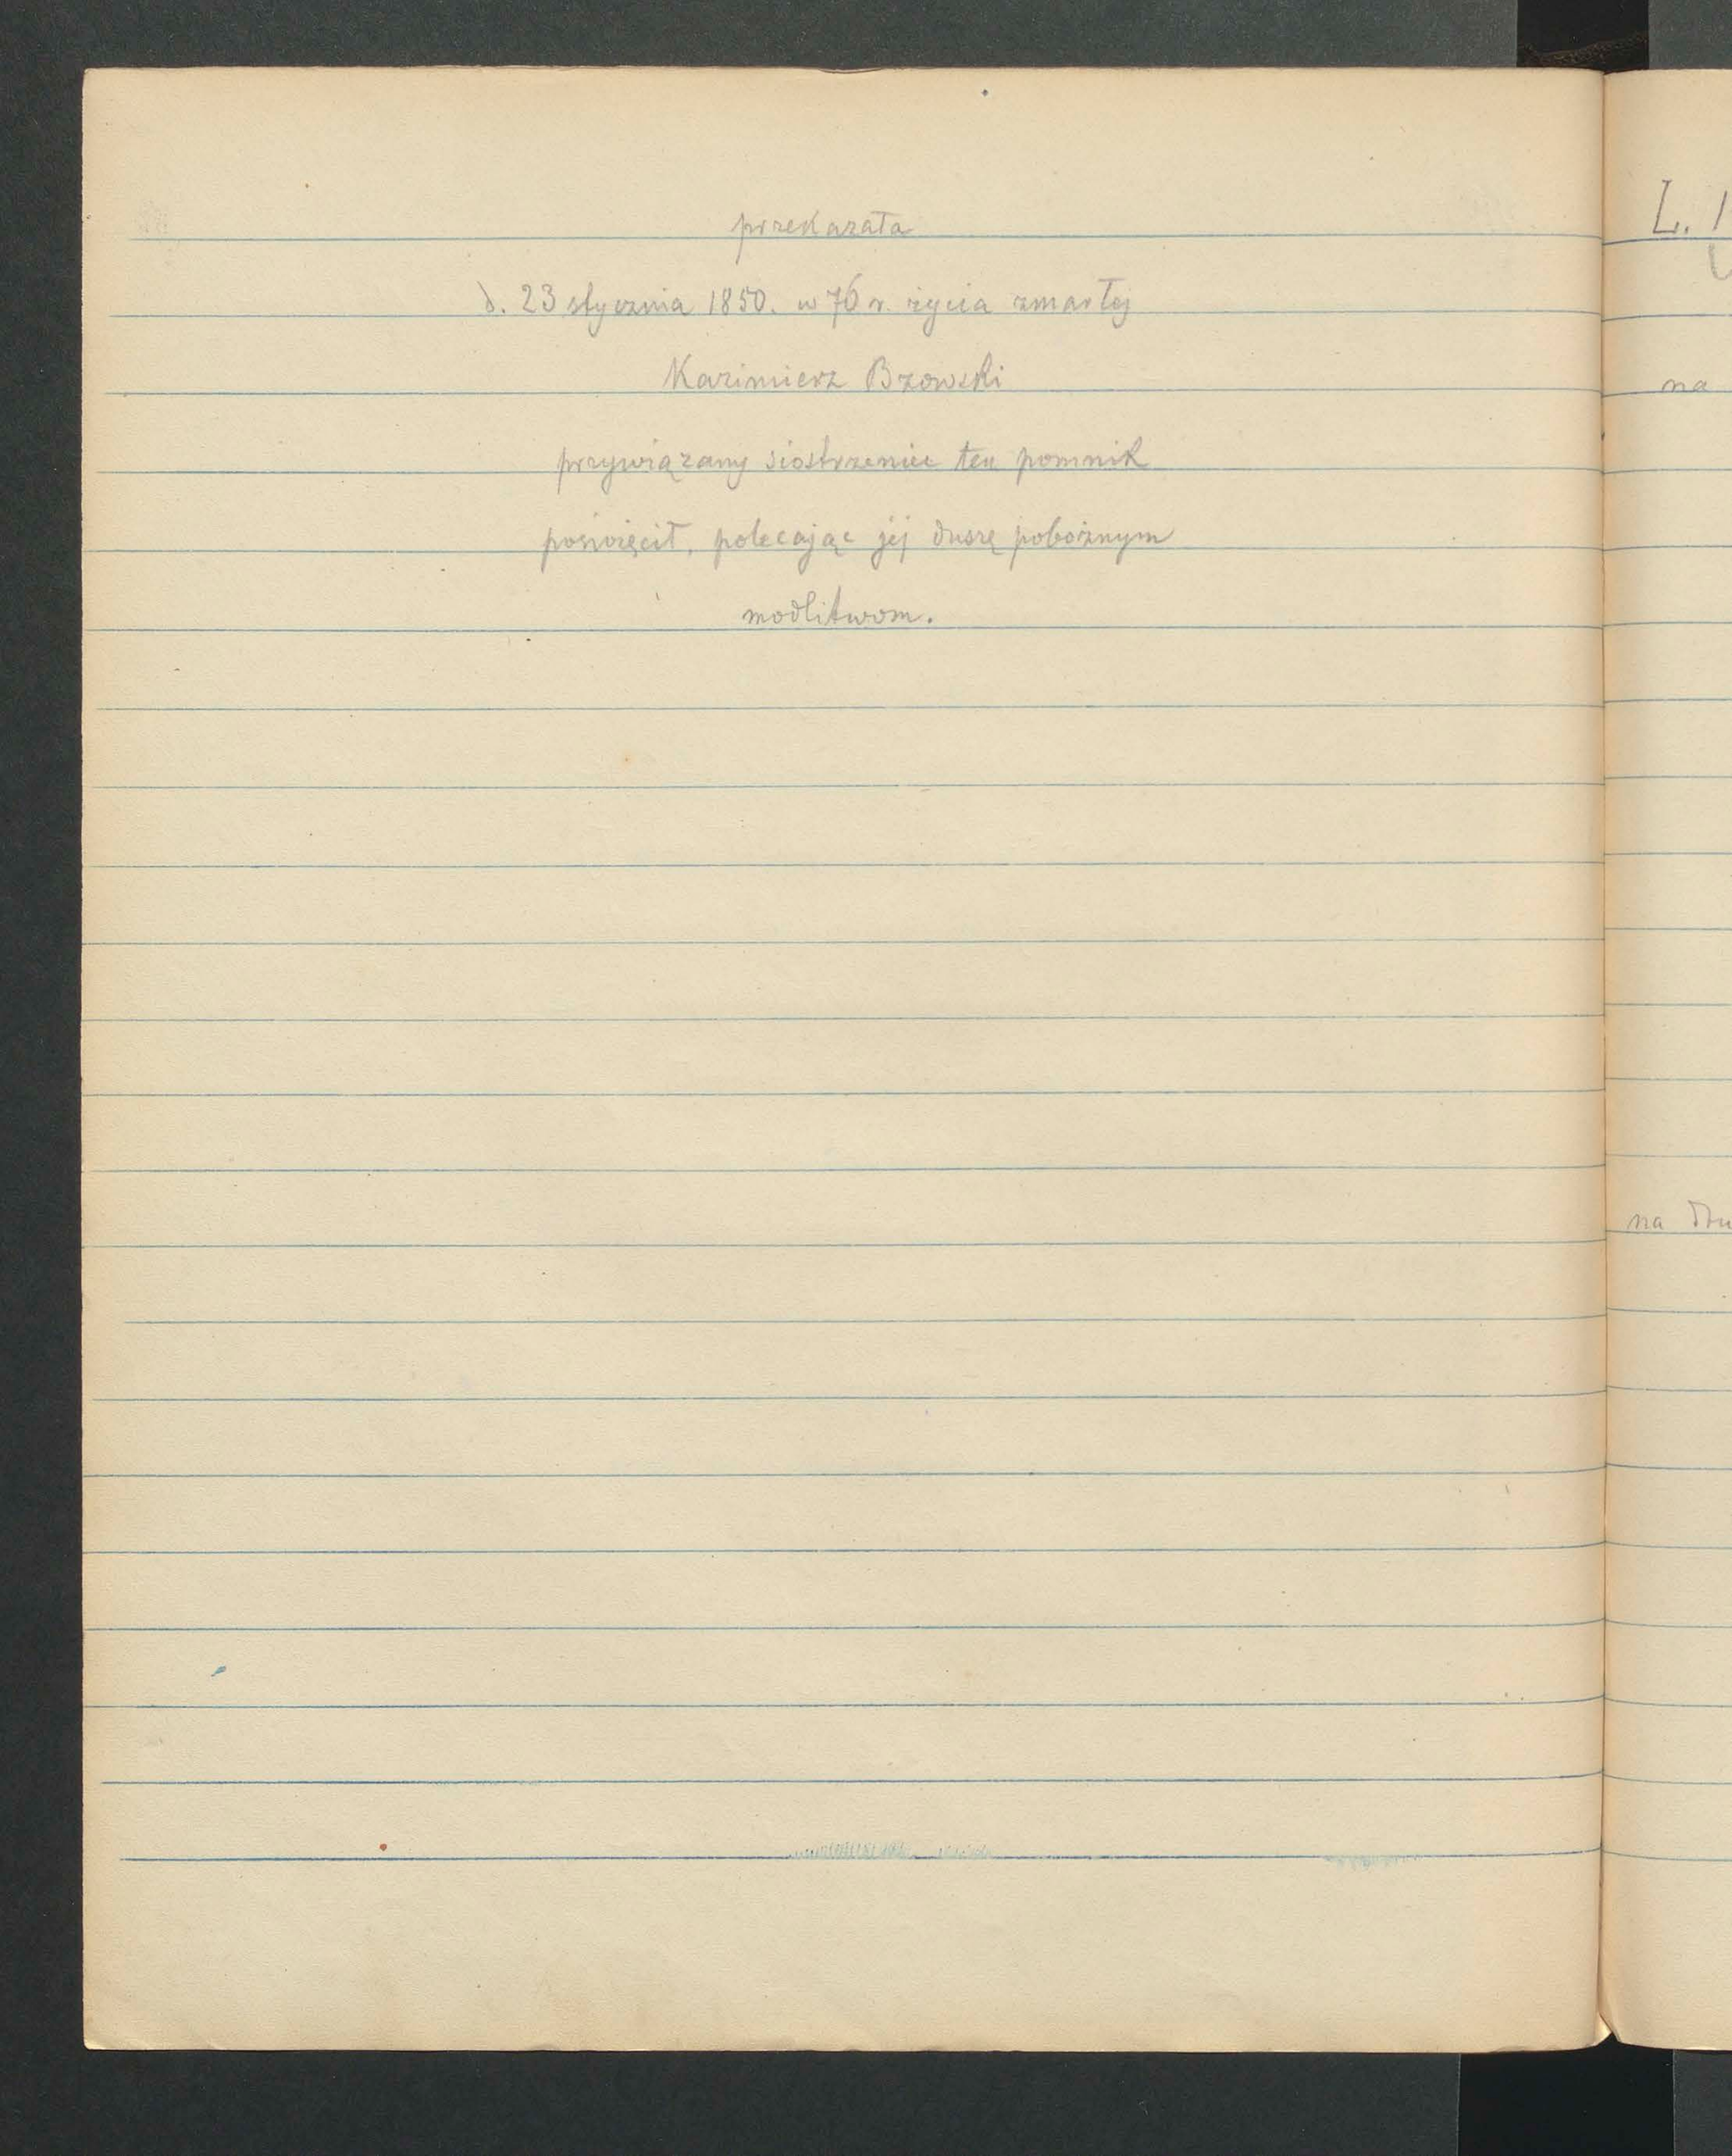 przekazała
d. 23 stycznia 1850. w 76 r. życia zmarłej
Kazimierz Bzowski
przywiązany siostrzeniec ten pomnik
poświęcił, polecając jej duszę pobożnym
modlitwom.
L. 1
na
na